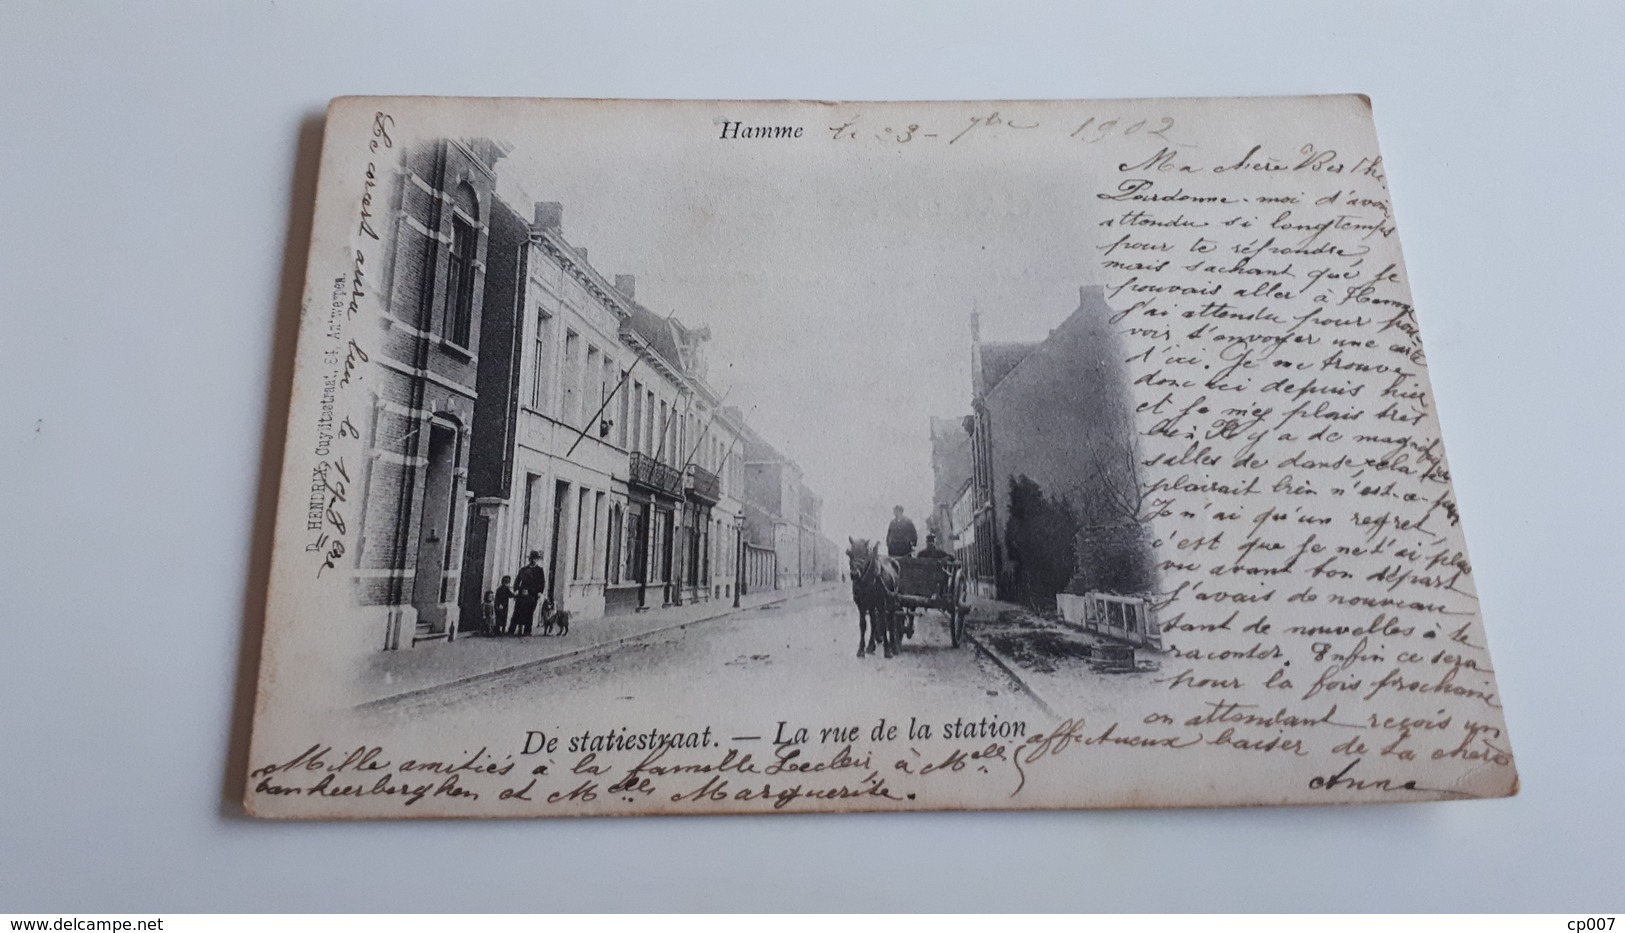 Hamme le 23 - 7bre 1902
Ma chère Berthe.
Pardonne-moi d'avoir
attendu si longtemps
pour te répondre,
mais sachant que je
pouvais aller à Hamme
j'ai attendu pour pou
voir t'envoyer une carte
d'ici. Je me trouve
donc ici depuis hier
et je m'y plais très
bien. Il y a de magnifiques
salles de danse, cela te
plairait bien n'est-ce-pas
Je n'ai qu'un regret,
c'est que je ne t'ai plus
vu avant ton départ
j'avais de nouveau
tant de nouvelles à te
raconter. Enfin ce sera
pour la fois prochaine
en attendant reçois un
affectueux baiser de ta chère
Anna
De statiestraat. — La rue de la station
Mille amitiés à la famille Leclair, à Melle
Vankeerberghen et Melle Marguerite.
Le corset aura lieu le 19-8bre
D. HENDRIX, Cuylitsstraat, 61, Antwerpen.
delcampe.net
cp007